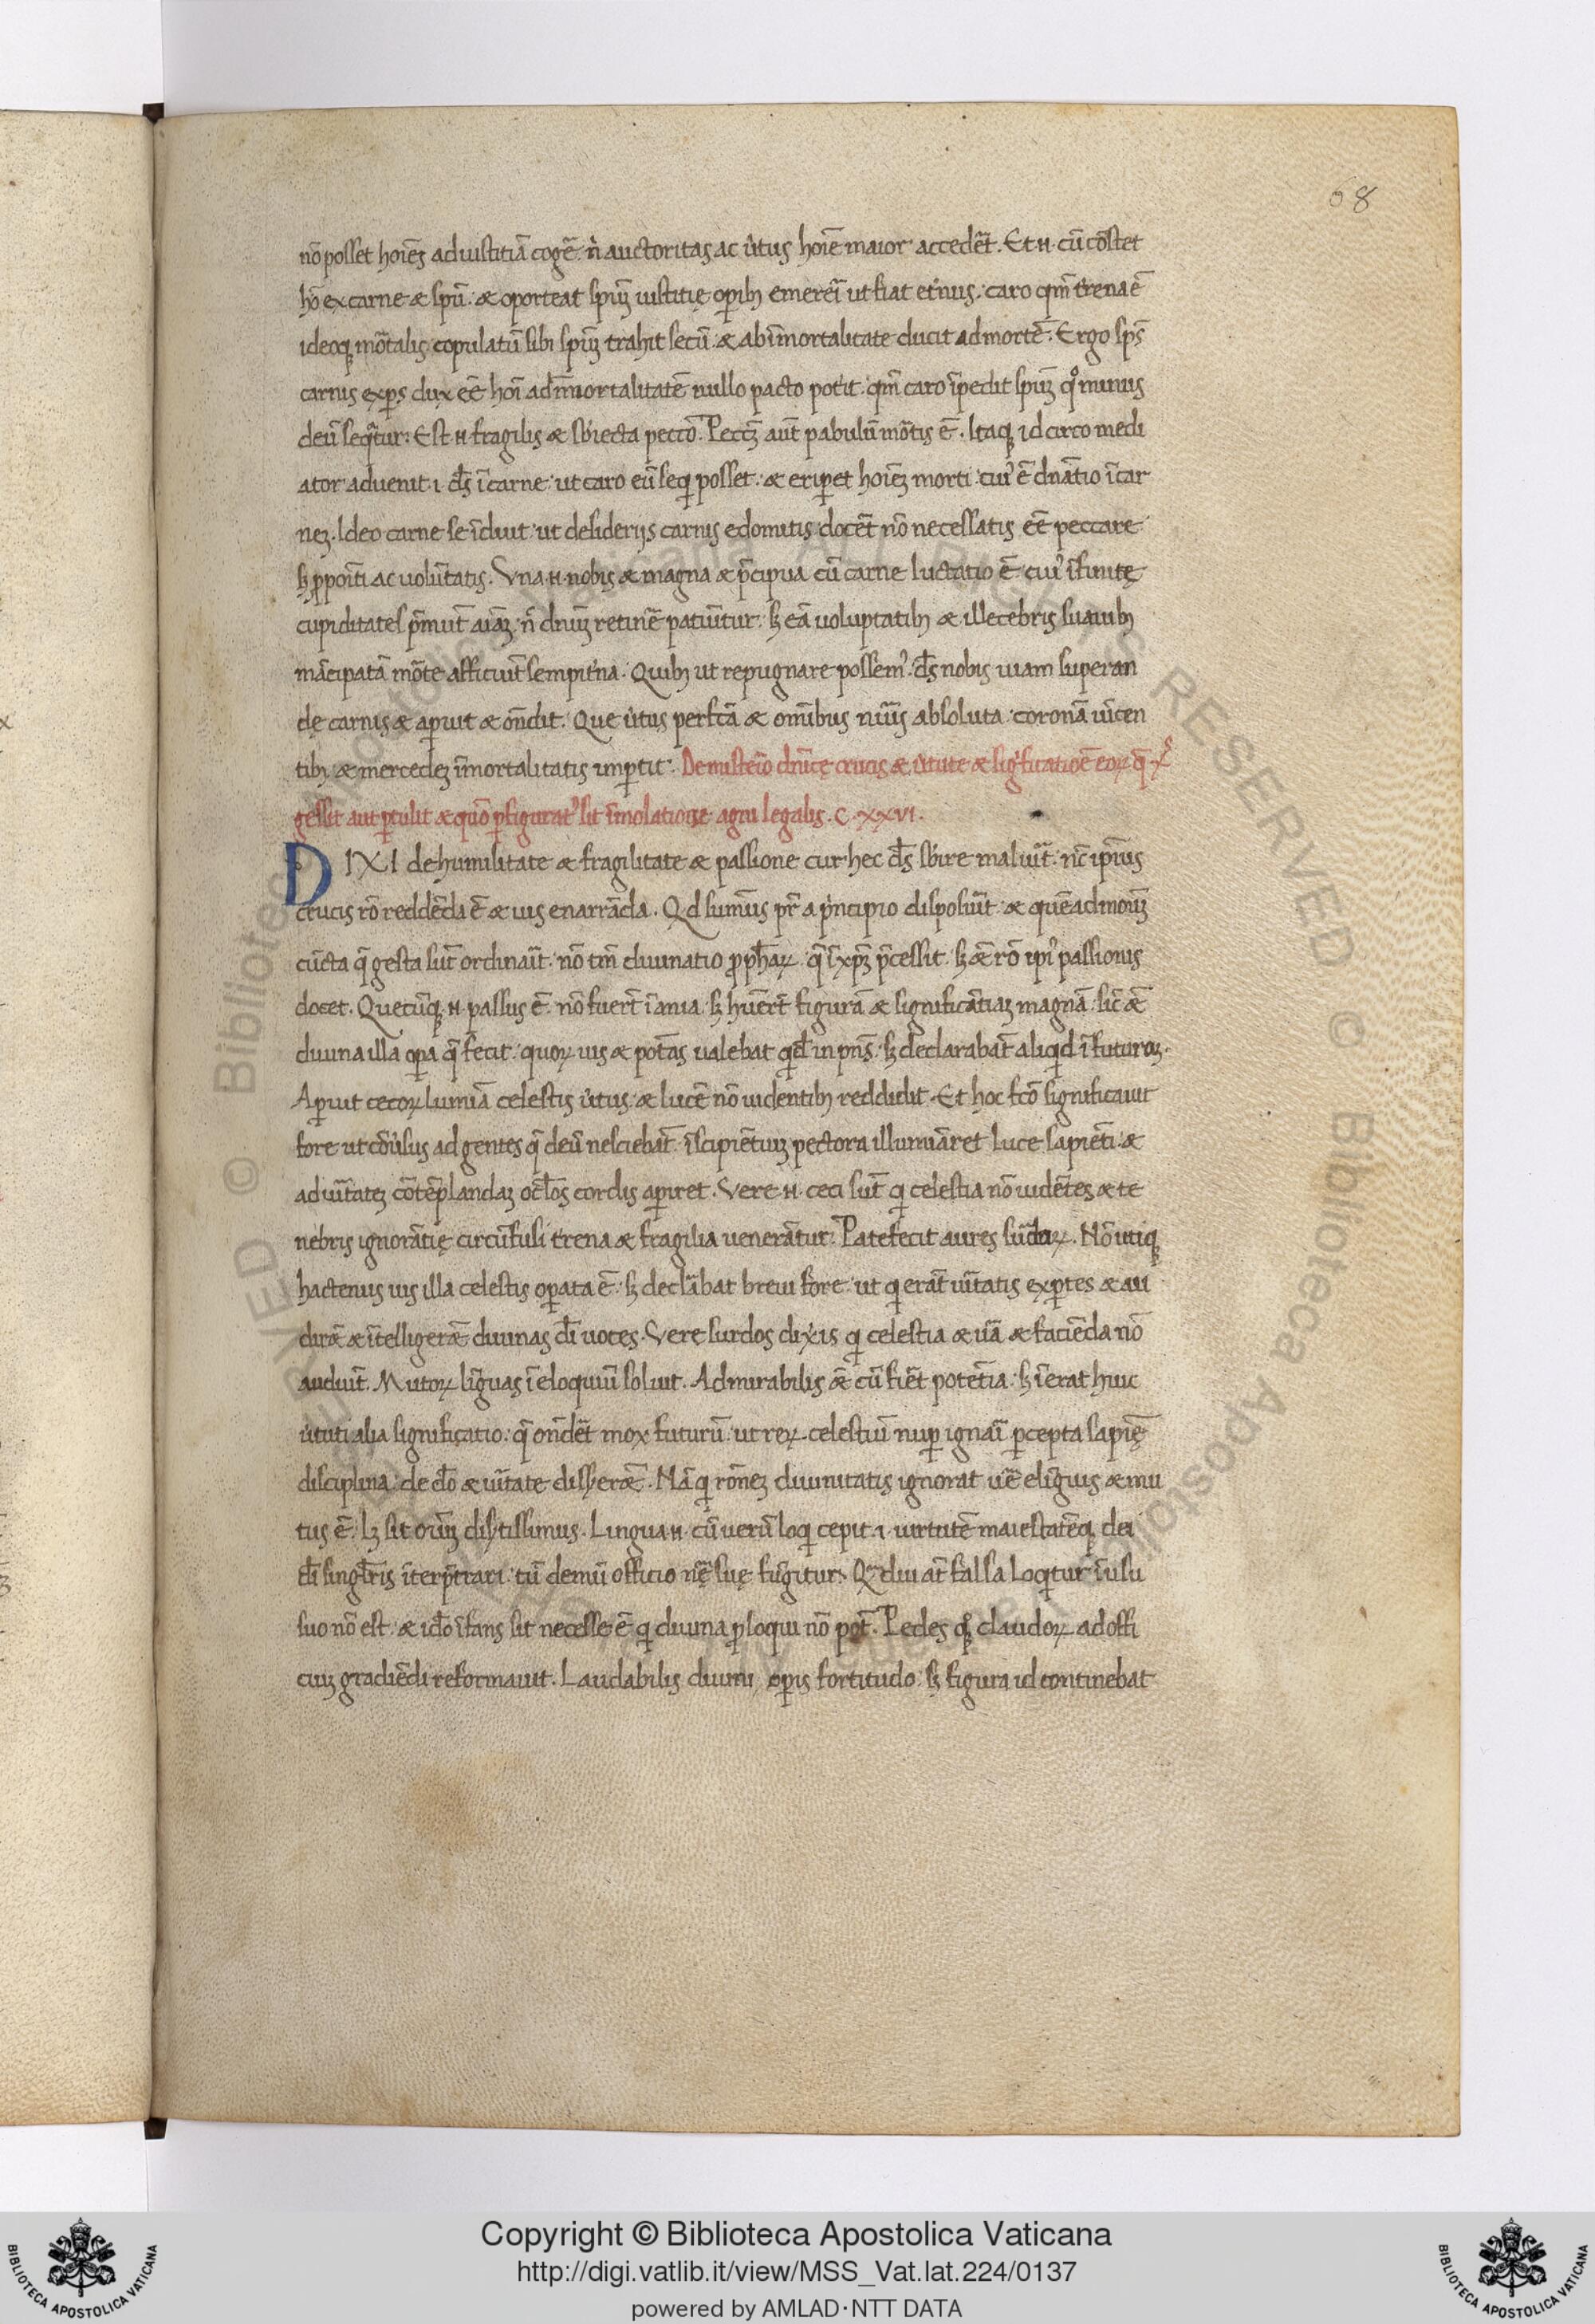 68
nō posset hoīeꝫ ad iustitiā cogē. n̄ auctoritas ac ūtus hoīe maior accedēt. Et n̄. cū cōstet
hō ex carne & spū. & oporteat spūꝫ iustitię opibꝫ emererī ut fiat et'nus. caro qm̄ t'rena ē
ideoqꝫ mōtalis. copulatū sibi spūꝫ trahit secū. & ab īmortalitate ducit ad mortē. Ergo sps̄
carnis expˢ dux eē hoī ad īmortalitatē nullo pacto pot'it. qm̄ caro īpedit spūꝫ qº minus
deū seq̄tur. Est n̄ fragilis & sb'iecta pecc̄o. Pecc̄ꝫ aūt pabulū mōtis ē. Itaqꝫ idcirco medi
ator aduenit .i. ds̄ ī carne. ut caro eū seqi posset. & eriꝑet hoīeꝫ morti. cui' ē dn̄atio ī car
neꝫ. Ideo carne se īduit. ut desiderijs carnis edomitis docēt nō necessatis eē peccare
sꝫ ꝓpoīti ac volūtatis. Una n̄. nobis & magna & p̄cipua cū carne luctatio ē. cui' īfinitę
cupiditates p̄mūt aīaꝫ. n̄ dn̄iuꝫ retinē patiūtur. sꝫ eā voluptatibꝫ & illecebris suauibꝫ
mācipatā mōte afficiūt sempit'na. Quibꝫ ut repugnare possem'. ds̄ nobis uiam superan
dę carnis & aꝑuit & on̄dit. Que ūtus perfc̄ā & omībus nūis absoluta. coronā uīcen
tibꝫ & mercedeꝫ īmortalitatis imꝑtit. De misteīo dn̄icę crucis & ūtute & sig'ficatiōe eoꝝ q̄. x̄ˢ
gessit aut ꝑtulit & quō p̄figurat' sit īmolatione agni legalis. C. XXVI.
DIXI de humilitate & fragilitate & passione cur hec ds̄ sb'ire maluīt. nc̄ ipīus
crucis rō reddēda ē & uis enarrāda. Qd sum̄us pr̄ a p̄ncipio disposuīt. & quēadmoꝫ
cūcta q̄ gesta sūt ordinaīt. nō tm̄ diuinatio ꝓph̄aꝝ. q̄ ī xp̄ꝫ p̄cessit. sꝫ & rō ipi' passionis
docet. Quecūqꝫ n̄ passus ē. nō fuert īania. sꝫ hūert figurā & significātiaꝫ magnā. sic &
diuina illa oꝑa q̄ fecit. quoꝝ uis & potās ualebat qid' in pn̄s. sꝫ declarabat aliqid ī futuroꝫ.
Aꝑuit cecoꝝ lumīa celestis ūtus. & lucē nō uidentibꝫ reddidit. Et hoc fc̄o significauit
fore ut cōūsus ad gentes q̄ deū nesciebāt. īscipiētiuꝫ pectora illumīaret luce sapiēti &
ad uītateꝫ cōtēplandaꝫ oc̄los cordis aꝑiret. Vere n̄. ceci sūt qi celestia nō uidētes & te
nebris ignorātię circūfusi t'rena & fragilia uenerātur. Patefecit aures sudoꝝ. Nō utiqꝫ
hactenus uis illa celestis oꝑata ē. sꝫ declābat breui fore. ut qi erāt uītatis exꝑtes & au
dirēt & ītelligerēt diuinas dī uoces. Vere surdos dix'is qi celestia & uā & faciēda nō
audiūt. Mutoꝝ līguas ī eloquiū soluit. Admirabilis & cū fiēt potētia. sꝫ īerat huic
ūtuti alia significatio. q̄ on̄dēt mox futurū. ut reꝝ celestiū nuꝑ ignaī ꝑcepta sapię
disciplina. de do & uītate diss'erēt. Nā qi rōneꝫ diuinitatis ignorat uē elīguis & mu
tus ē. lꝫ sit oīuꝫ dis'tissimus. Lingua n̄. cū uerū loqi cepit .i. uirtutē maiestatēqꝫ dei
dī singl̄ris īterp̄trari. tū demū officio nę̄ suę fūgitur. Qdiu at falsa loqitur ī usu
suo nō est. & ido īfans sit necesse ē qi diuina ꝓloqui nō pot. Pedes qqꝫ claudoꝝ ad offi
ciuꝫ gradiēdi reformauit. Laudabilis diuini oꝑis fortitudo. sꝫ figura id continebat
Copyright © Biblioteca Apostolica Vaticana
http://digi.vatlib.it/view/MSS_Vat.lat.224/0137
powered by AMLAD·NTT DATA